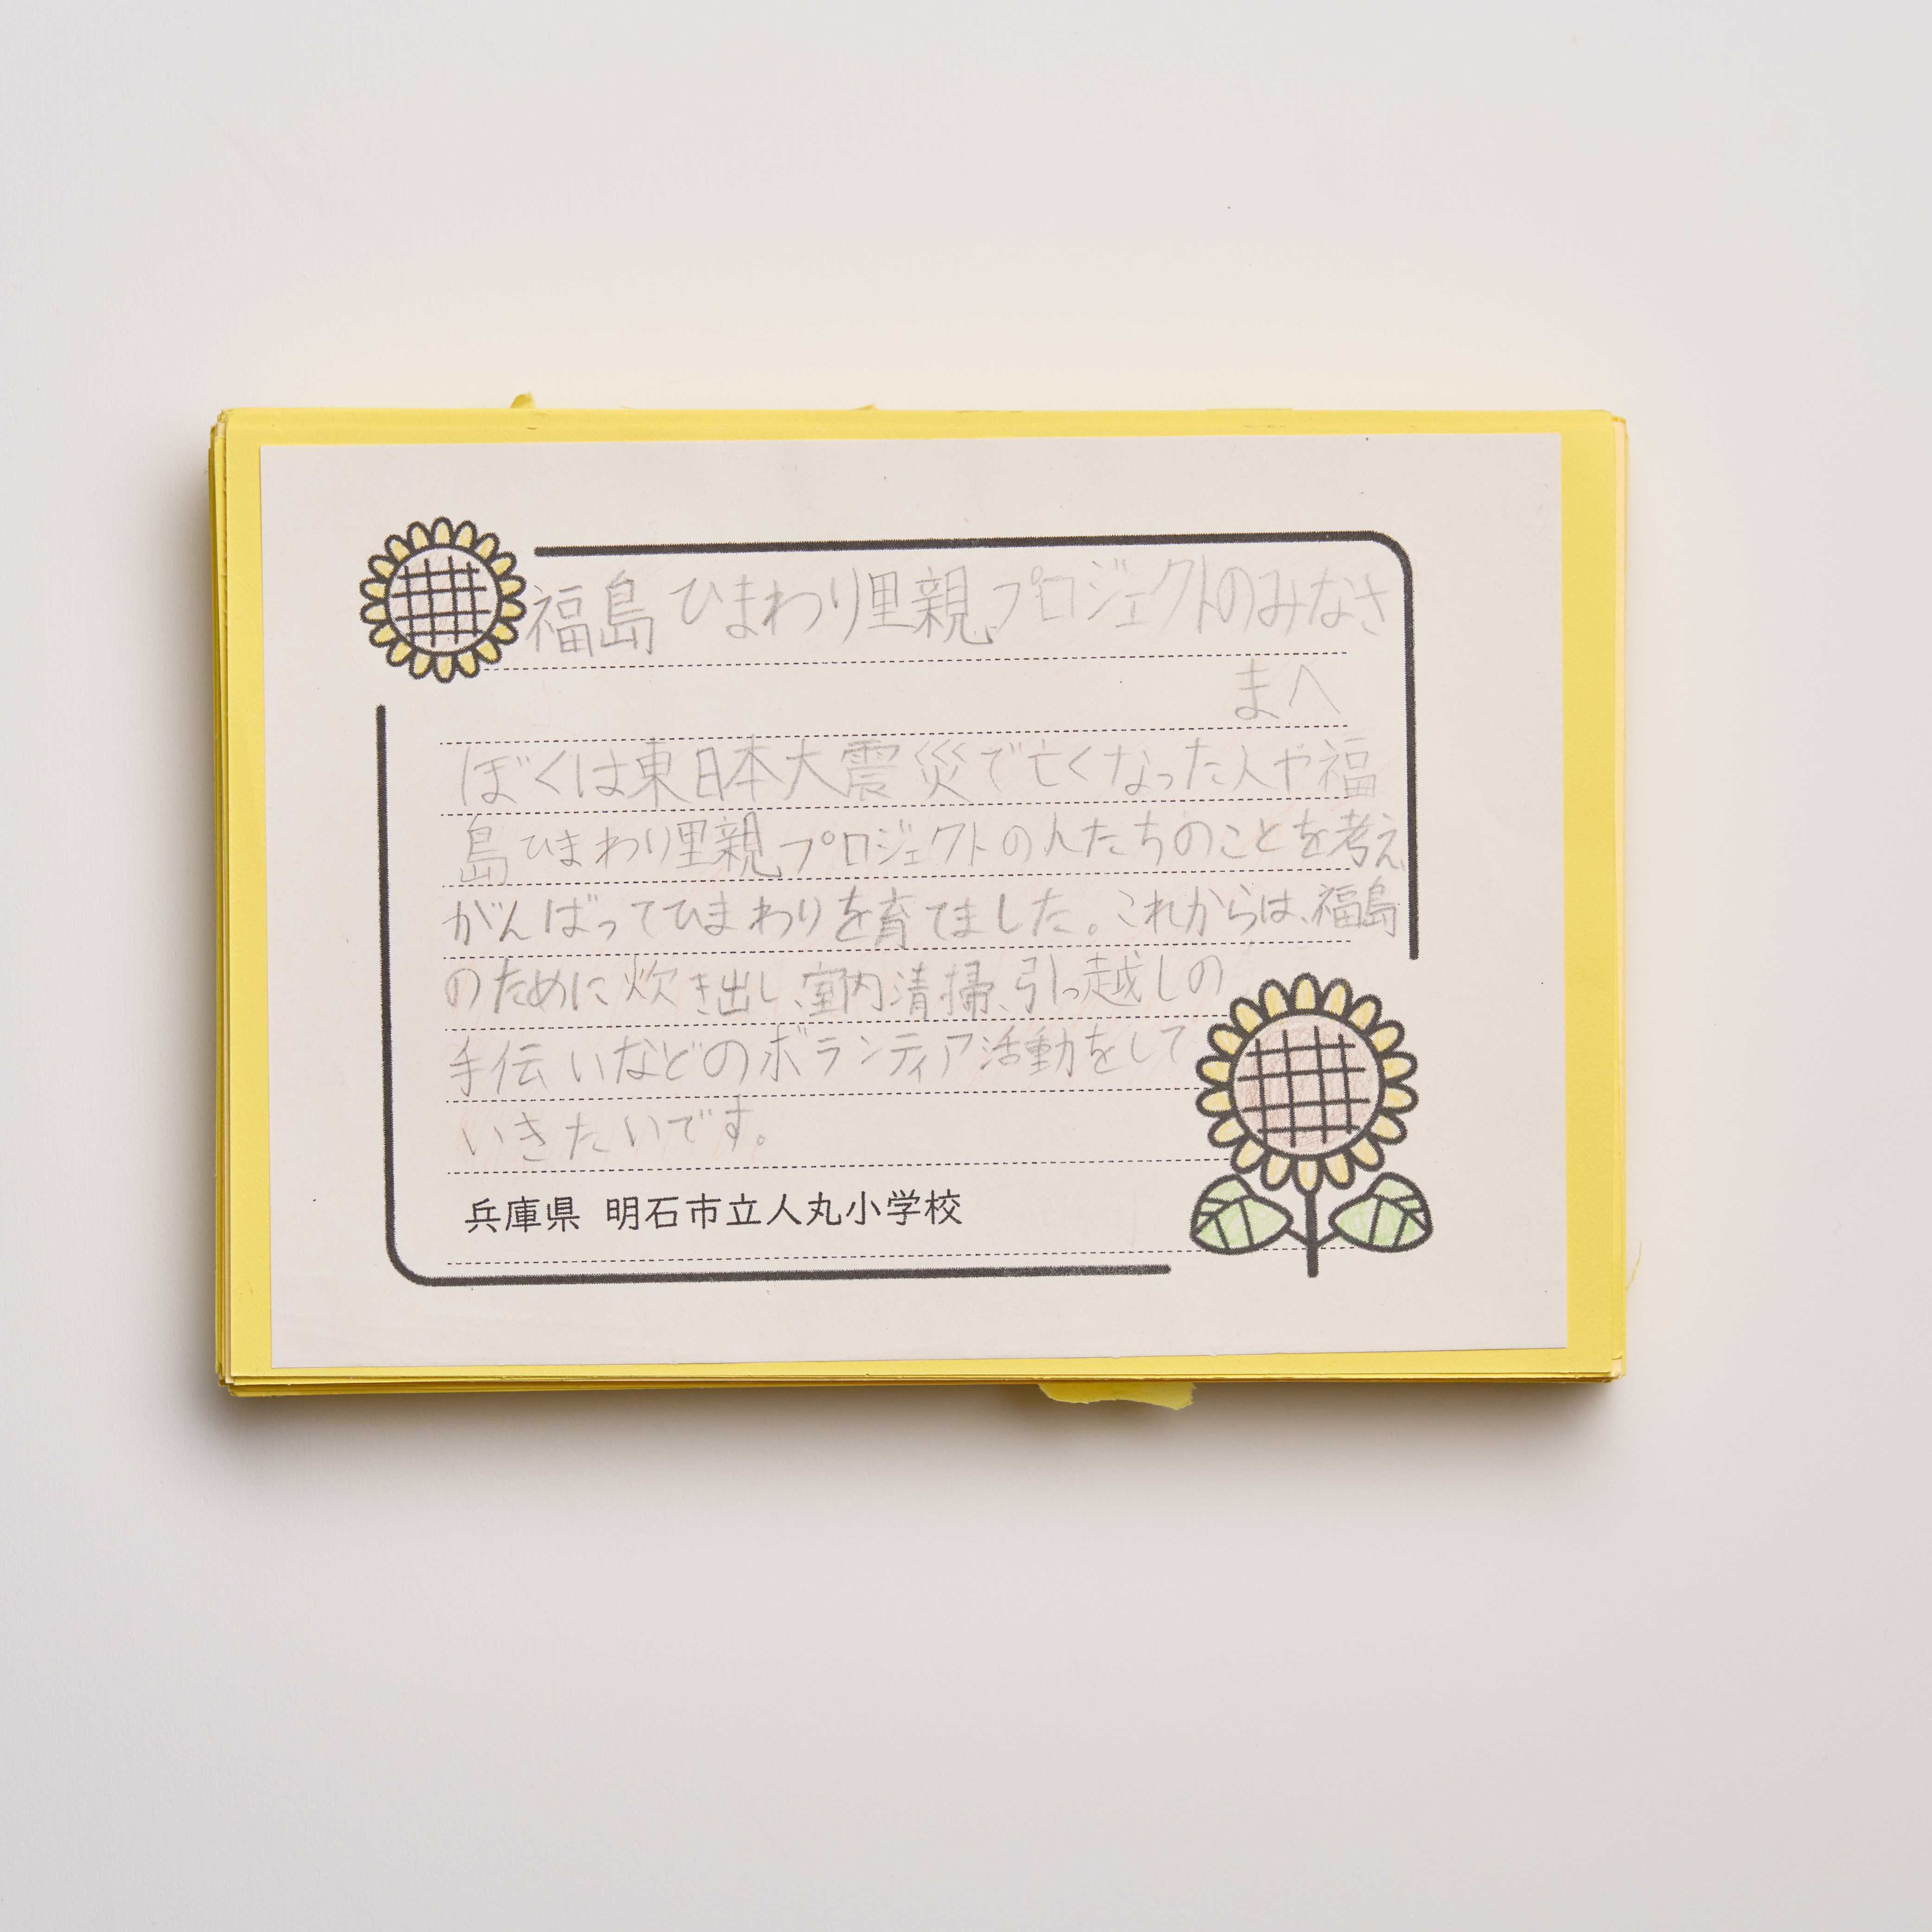 福島ひまわり里親プロジェクトのみなさ
まへ
ぼくは東日本大震災で亡くなった人や福
島ひまわり里親プロジェクトの人たちのことを考え、
がんばってひまわりを育てました。これからは、福島
のために炊き出し、室内清掃、引っ越しの
手伝いなどのボランティア活動をして
いきたいです。
兵庫県 明石市立人丸小学校